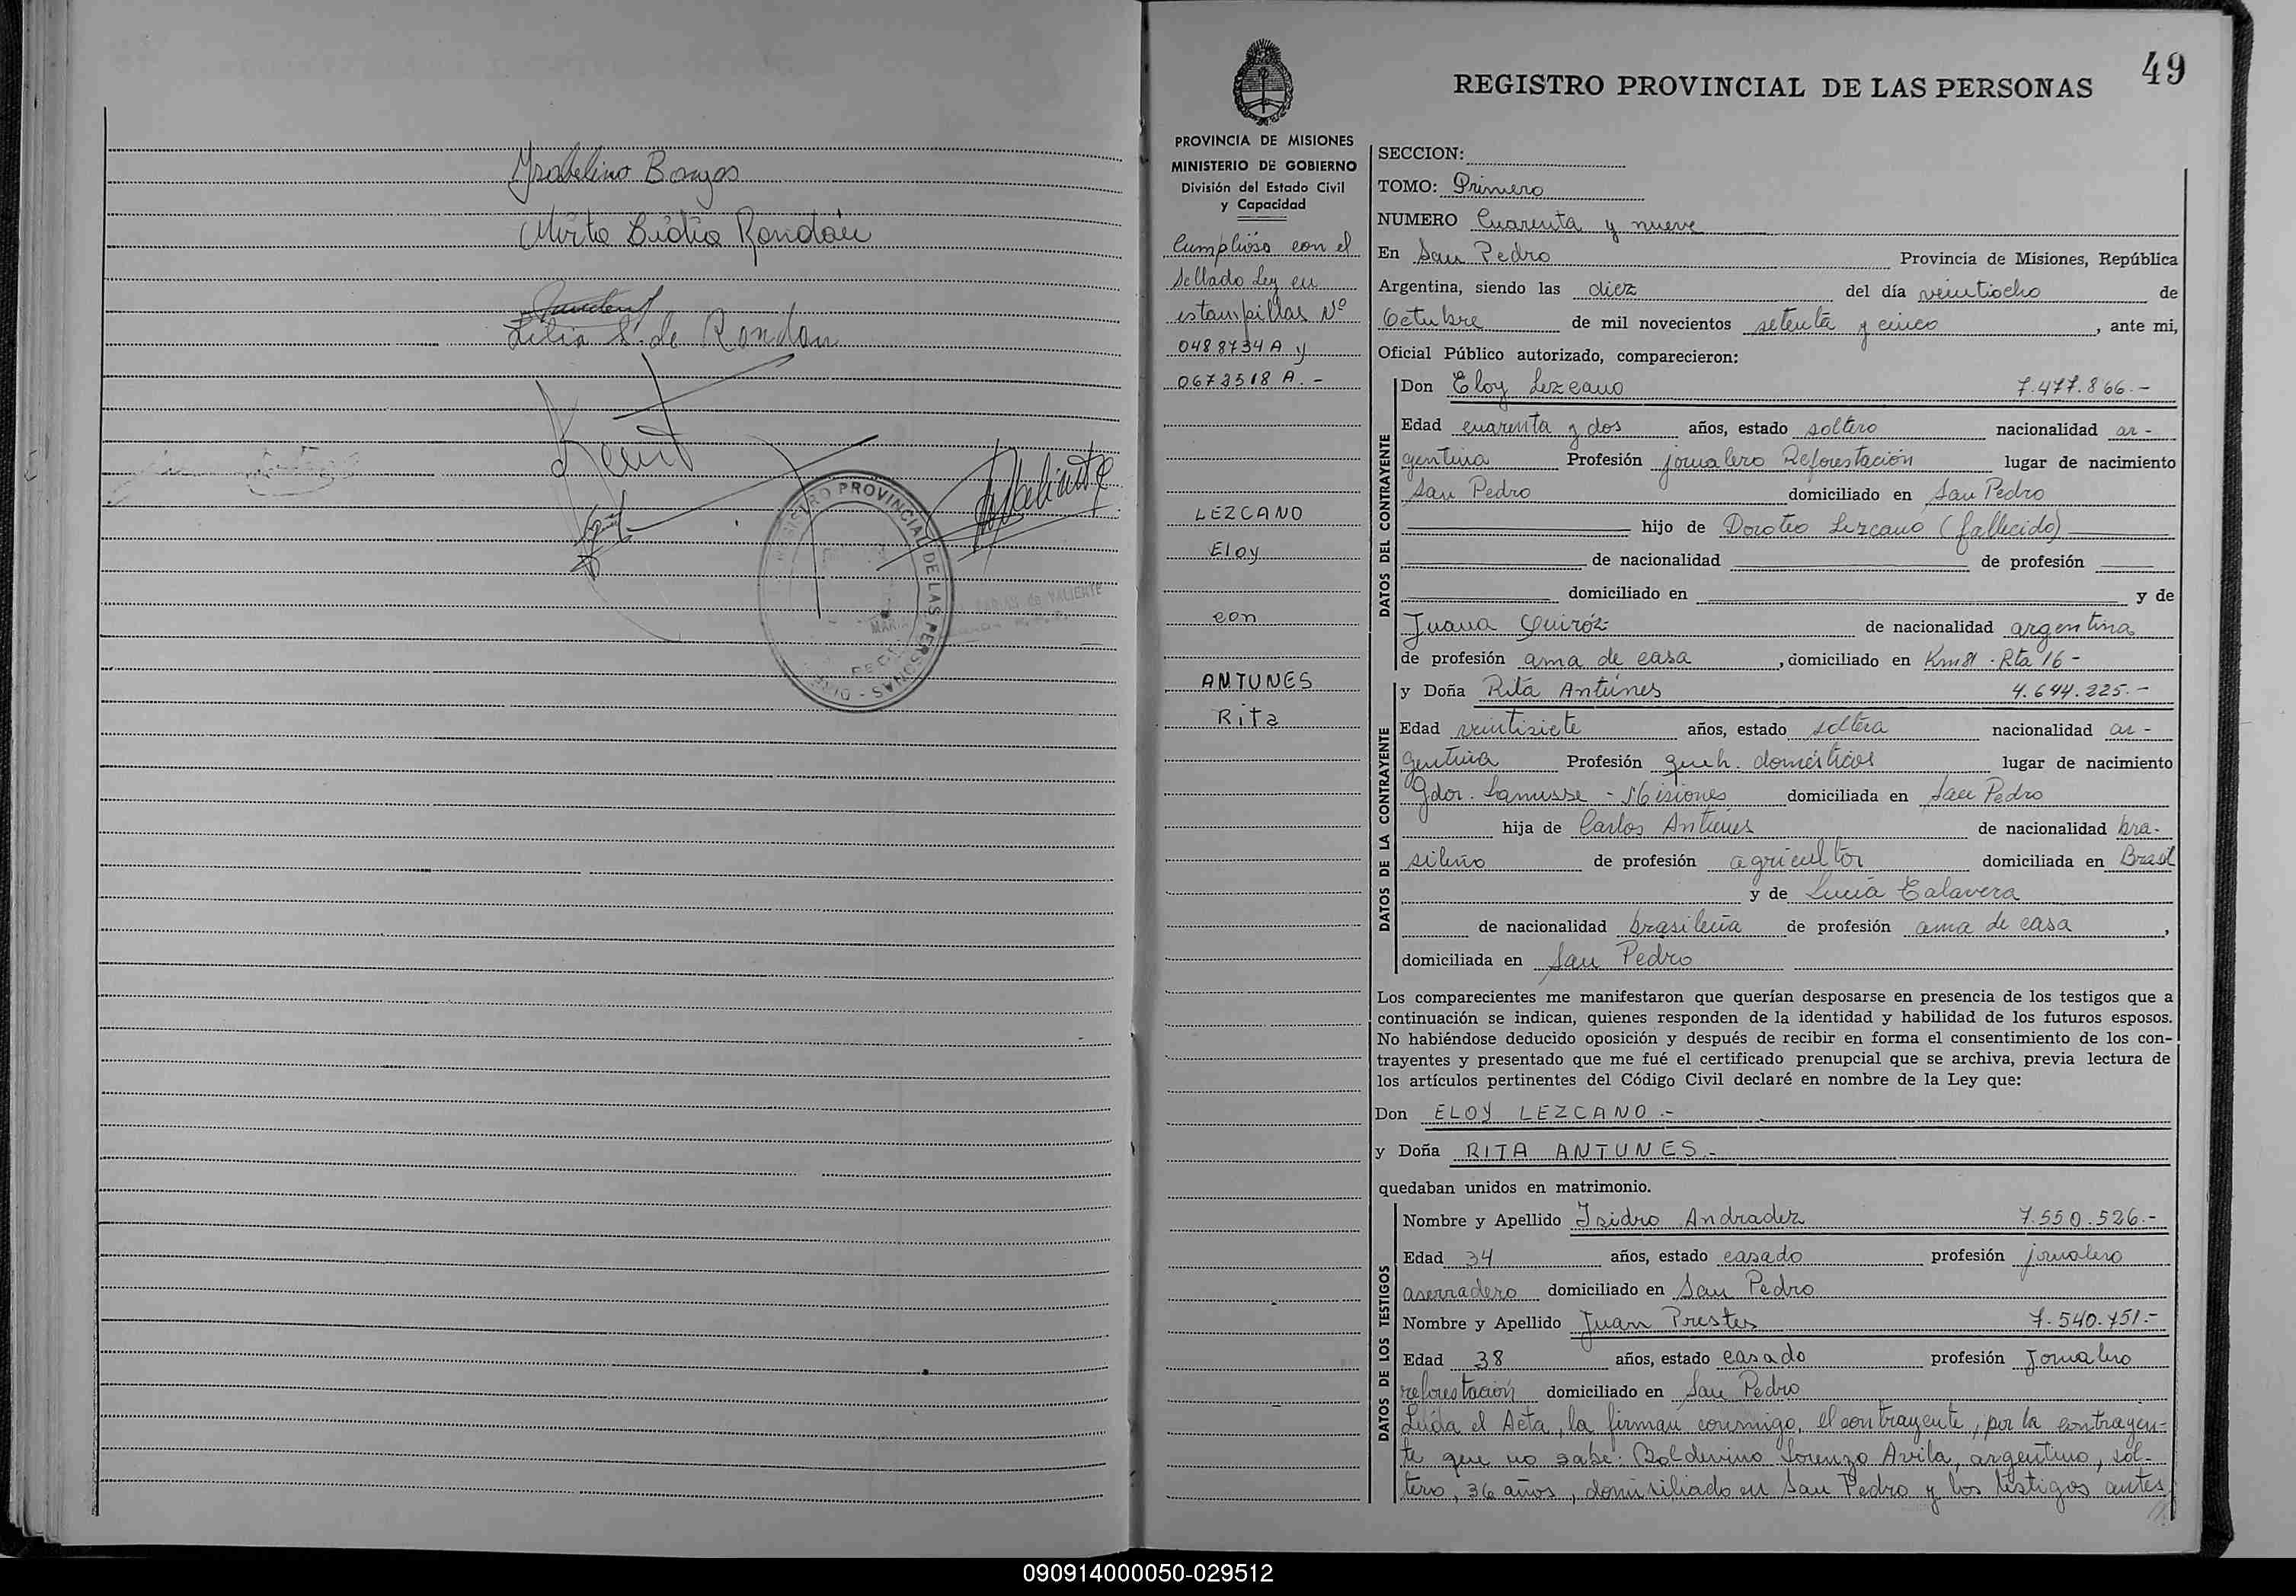 Mirta Lidia Rondón
Lilia S. de Rondon
REGISTRO PROVINCIAL DE LAS PERSONAS
49
PROVINCIA DE MISIONES
MINISTERIO DE GOBIERNO
División del Estado Civil
y Capacidad
Cumplióse con el
Sellado Ley en
estampillas Nº
0488734 A y
0673518 A.-
LEZCANO
Eloy
con
ANTUNES
Rita
SECCION:
TOMO: Primero
NUMERO Cuarenta y nueve
En San Pedro Provincia de Misiones, República
Argentina, siendo las diez del día veintiocho de
Octubre de mil novecientos setenta y cinco, ante mi,
Oficial Público autorizado, comparecieron:
DATOS DEL CONTRAYENTE
Don Eloy Lezcano 7.477.866.-
Edad cuarenta y dos años, estado soltero nacionalidad ar-
gentina Profesión jornalero Reforestación lugar de nacimiento
San Pedro domiciliado en San Pedro
hijo de Doroteo Lezcano (fallecido)
de nacionalidad de profesión
domiciliado en y de
Juana Quiróz de nacionalidad argentina
de profesión ama de casa, domiciliado en Km 81 - Rta 16-
DATOS DE LA CONTRAYENTE
y Doña Rita Antúnes 4.644.225.-
Edad veintisiete años, estado soltera nacionalidad ar-
gentina Profesión queh. domésticos lugar de nacimiento
Gdor. Lanusse - Misiones domiciliada en San Pedro
hija de Carlos Antunes de nacionalidad bra-
sileño de profesión agricultor domiciliada en Brasil
y de Lucia Talavera
de nacionalidad brasileña de profesión ama de casa,
domiciliada en San Pedro
Los comparecientes me manifestaron que querían desposarse en presencia de los testigos que a
continuación se indican, quienes responden de la identidad y habilidad de los futuros esposos.
No habiéndose deducido oposición y después de recibir en forma el consentimiento de los con-
trayentes y presentado que me fué el certificado prenupcial que se archiva, previa lectura de
los artículos pertinentes del Código Civil declaré en nombre de la Ley que:
Don ELOY LEZCANO.-
y Doña RITA ANTUNES.-
quedaban unidos en matrimonio.
DATOS DE LOS TESTIGOS
Nombre y Apellido Isidro Andradez 7.550.526.-
Edad 34 años, estado casado profesión jornalero
aserradero domiciliado en San Pedro
Nombre y Apellido Juan Prestes 7.540.751.-
Edad 38 años, estado casado profesión Jornalero
reforestación domiciliado en San Pedro
Leida el Acta, la firman conmigo, el contrayente, por la contrayen-
te que no sabe: Balduvino Lorenzo Avila, argentino, sol-
tero, 36 años, domiciliado en San Pedro y los testigos antes
090914000050-029512